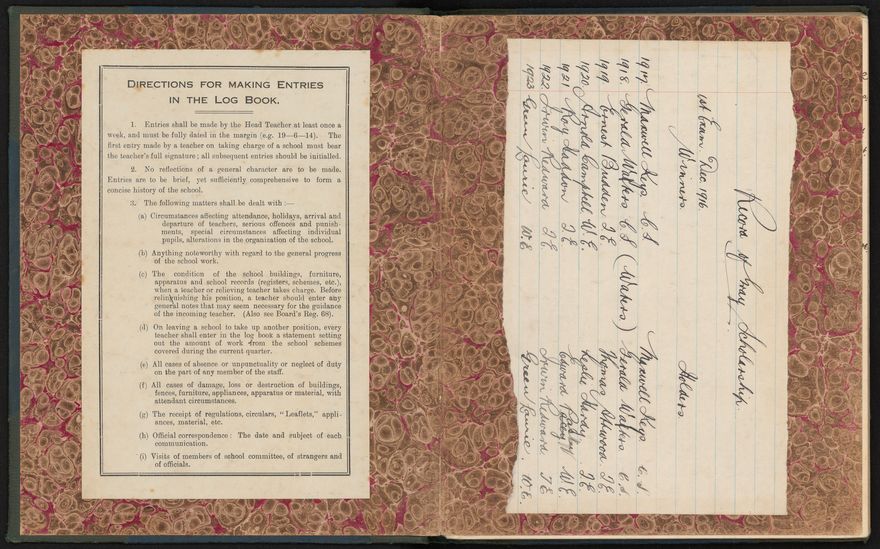 DIRECTIONS FOR MAKING ENTRIES
IN THE LOG BOOK.
1. Entries shall be made by the Head Teacher at least once a
week, and must be fully dated in the margin (e.g. 19—6—14). The
first entry made by a teacher on taking charge of a school must bear
the teacher's full signature; all subsequent entries should be initialled.
2. No reflections of a general character are to be made.
Entries are to be brief, yet sufficiently comprehensive to form a
concise history of the school.
3. The following matters shall be dealt with :—
(a) Circumstances affecting attendance, holidays, arrival and
departure of teachers, serious offences and punish-
ments, special circumstances affecting individual
pupils, alterations in the organization of the school.
(b) Anything noteworthy with regard to the general progress
of the school work.
(c) The condition of the school buildings, furniture,
apparatus and school records (registers, schemes, etc.),
when a teacher or relieving teacher takes charge. Before
relinquishing his position, a teacher should enter any
general notes that may seem necessary for the guidance
of the incoming teacher. (Also see Board's Reg. 68).
(d) On leaving a school to take up another position, every
teacher shall enter in the log book a statement setting
out the amount of work from the school schemes
covered during the current quarter.
(e) All cases of absence or unpunctuality or neglect of duty
on the part of any member of the staff.
(f) All cases of damage, loss or destruction of buildings,
fences, furniture, appliances, apparatus or material, with
attendant circumstances.
(g) The receipt of regulations, circulars, "Leaflets," appli-
ances, material, etc.
(h) Official correspondence: The date and subject of each
communication.
(i) Visits of members of school committee, of strangers and
of officials.
Record of Scholarship
1st Exam Dec. 1916
Winners Holders
1917 Maxwell Keys C.S Maxwell Keys C.S.
1918 Gerald Walters C.S (Walters) Gerald Walters C.S.
1919 Ernest Budden T.E Thomas T.E.
1920 Arnold Campbell W.E. Leslie Hardy T.E
1921 Roy Haddon T.E Edward W.E.
1922 Irwin Edward T.E Irwin Edward T.E
1923 Green W.E Green W.E.